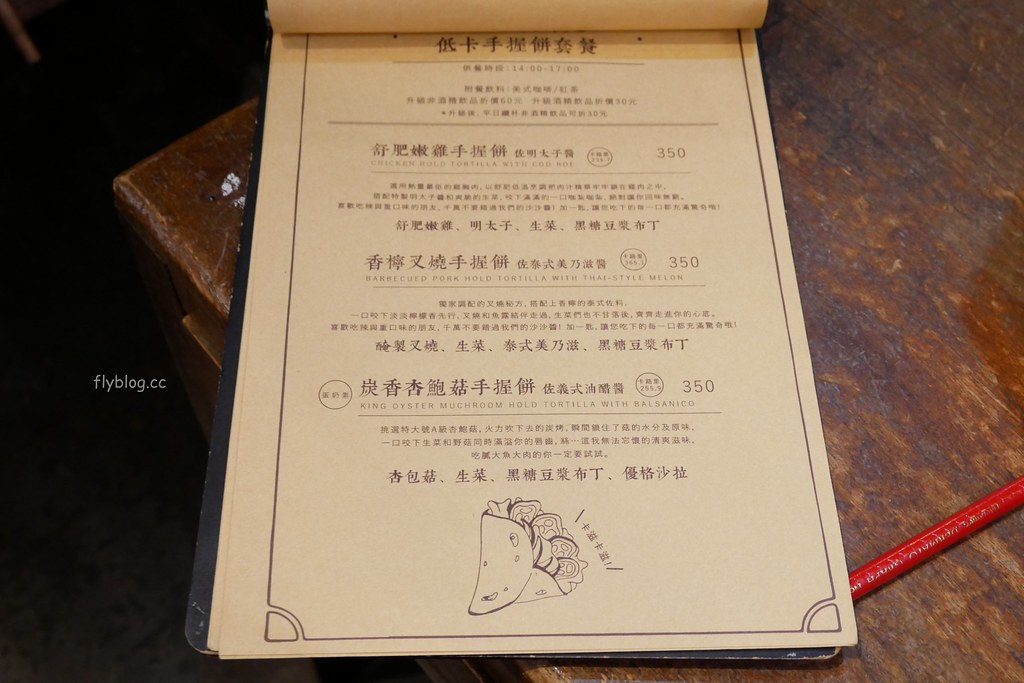 低卡手握餅套餐
供餐時段:14:00-17:00
附餐飲料:美式咖啡/紅茶
升級非酒精飲品折價60元 升級酒精飲品折價30元
舒肥嫩雞手握餅 佐明太子醬 350
CHICKEN HOLD TORTILLA WITH COD ROE
搭配特製明太子醬和爽脆的生菜,咬下滿滿的一口
喜歡吃辣與重口味的朋友,千萬不要錯過我們的沙沙醬! 加一匙,讓您吃下的每一口都充滿驚奇唷!
舒肥嫩雞、明太子、生菜、黑糖豆漿布丁
香檸叉燒手握餅 佐泰式美乃滋醬 卡路里 265.1 350
BARBECUED PORK HOLD TORTILLA WITH THAI-STYLE MELON
獨家調配的叉燒秘方,搭配上香檸的泰式佐料,
一口咬下淡淡檸檬香先行,叉燒和魚露結伴走過,生菜們也不甘落後,齊齊走進你的心底。
喜歡吃辣與重口味的朋友,千萬不要錯過我們的沙沙醬! 加一匙,讓您吃下的每一口都充滿驚奇唷!
醃製叉燒、生菜、泰式美乃滋、黑糖豆漿布丁
蛋奶素 炭香杏鮑菇手握餅 佐義式油醋醬 卡路里 255.9 350
KING OYSTER MUCHROOM HOLD TORTILLA WITH BALSANICO
挑選特大號A級杏鮑菇,火力吹下去的炭烤,瞬間鎖住了菇的水分及原味,
一口咬下生菜和野菇同時滿溢你的唇齒,絲⋯這我無法忘懷的清爽滋味,
吃膩大魚大肉的你一定要試試。
杏包菇、生菜、黑糖豆漿布丁、優格沙拉
flyblog.cc